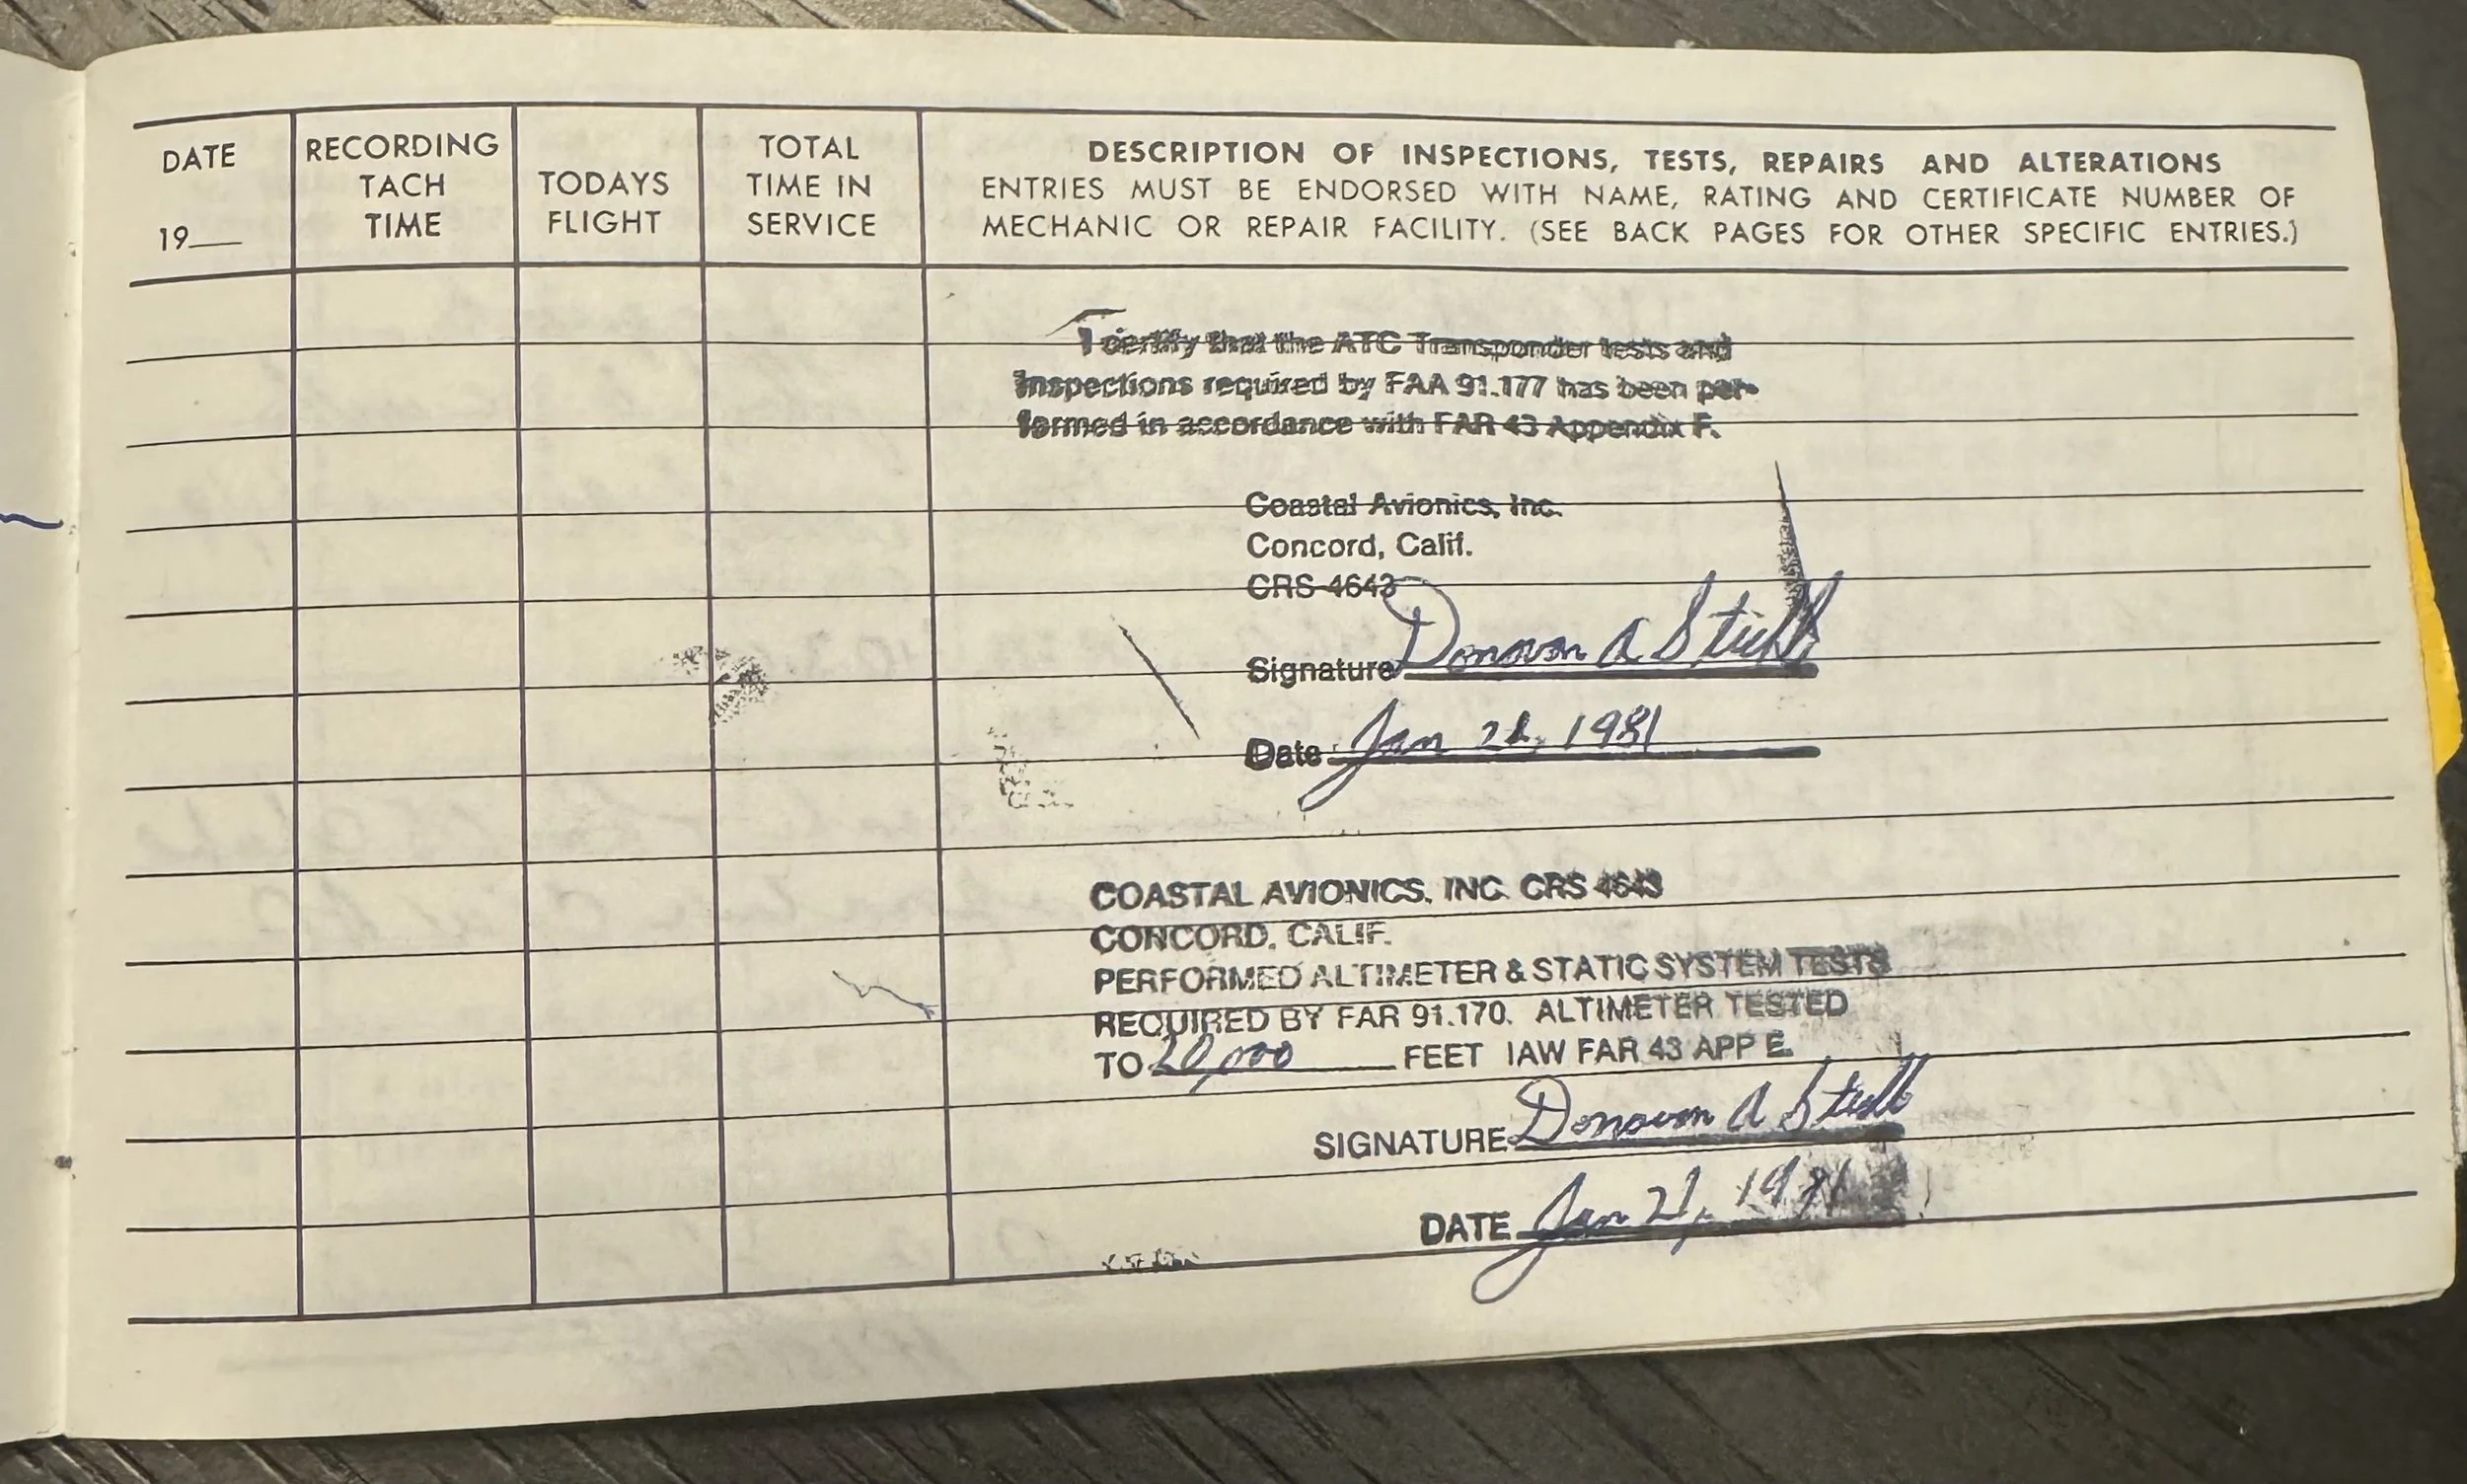 DATE
19__
RECORDING
TACH
TIME
TODAYS
FLIGHT
TOTAL
TIME IN
SERVICE
DESCRIPTION OF INSPECTIONS, TESTS, REPAIRS AND ALTERATIONS
ENTRIES MUST BE ENDORSED WITH NAME, RATING AND CERTIFICATE NUMBER OF
MECHANIC OR REPAIR FACILITY. (SEE BACK PAGES FOR OTHER SPECIFIC ENTRIES.)
I certify that the ATC Transponder tests and
Inspections required by FAA 91.177 has been per-
formed in accordance with FAR 43 Appendix F.
Coastal Avionics, Inc.
Concord, Calif.
CRS 4643
Signature Donovan A
Date Jan 21, 1981
COASTAL AVIONICS, INC. CRS 4643
CONCORD, CALIF.
PERFORMED ALTIMETER & STATIC SYSTEM TESTS
REQUIRED BY FAR 91.170. ALTIMETER TESTED
TO 20,000 FEET IAW FAR 43 APP E.
SIGNATURE Donovan A
DATE Jan 21, 1981